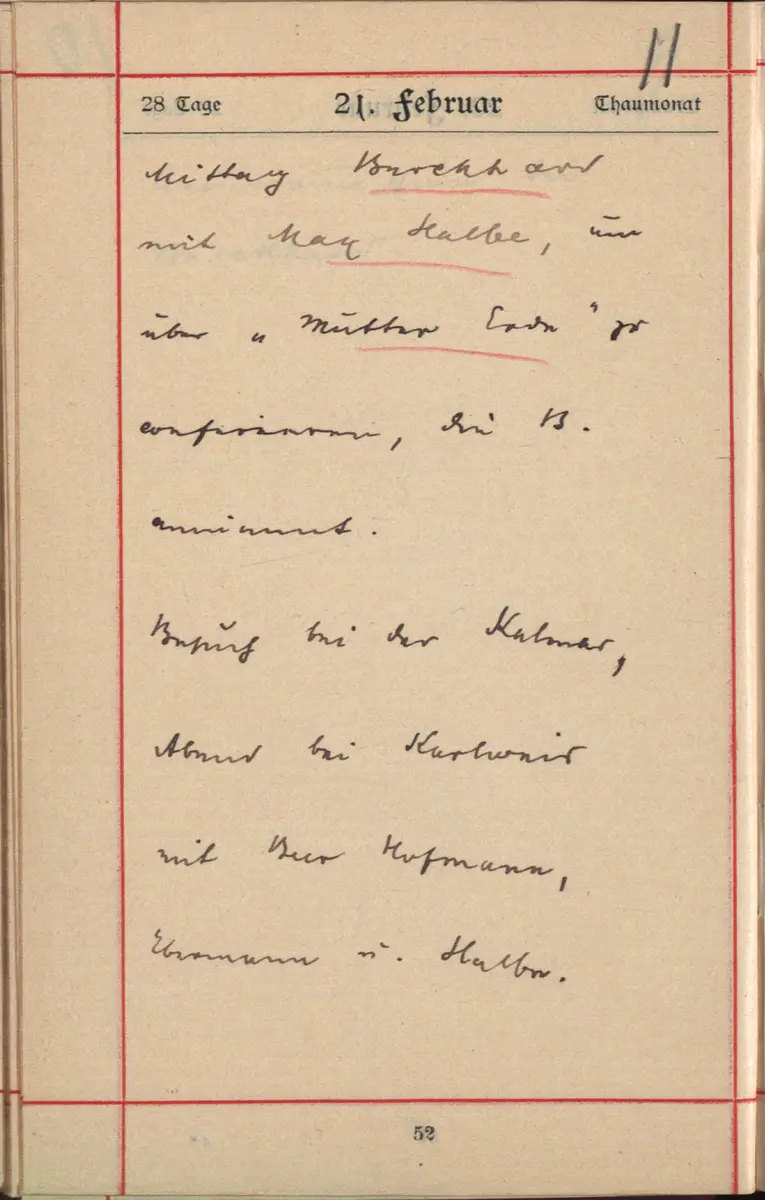 11
28 Tage 21. Februar Thaumonat
Mittag Burckhard
mit Max Halbe, um
über „Mutter Erde" zu
conferieren, die B.
annimmt.
Besuch bei der Kalmar,
Abend bei Karlweis
mit Beer Hofmann,
Ebermann u. Halbe.
52